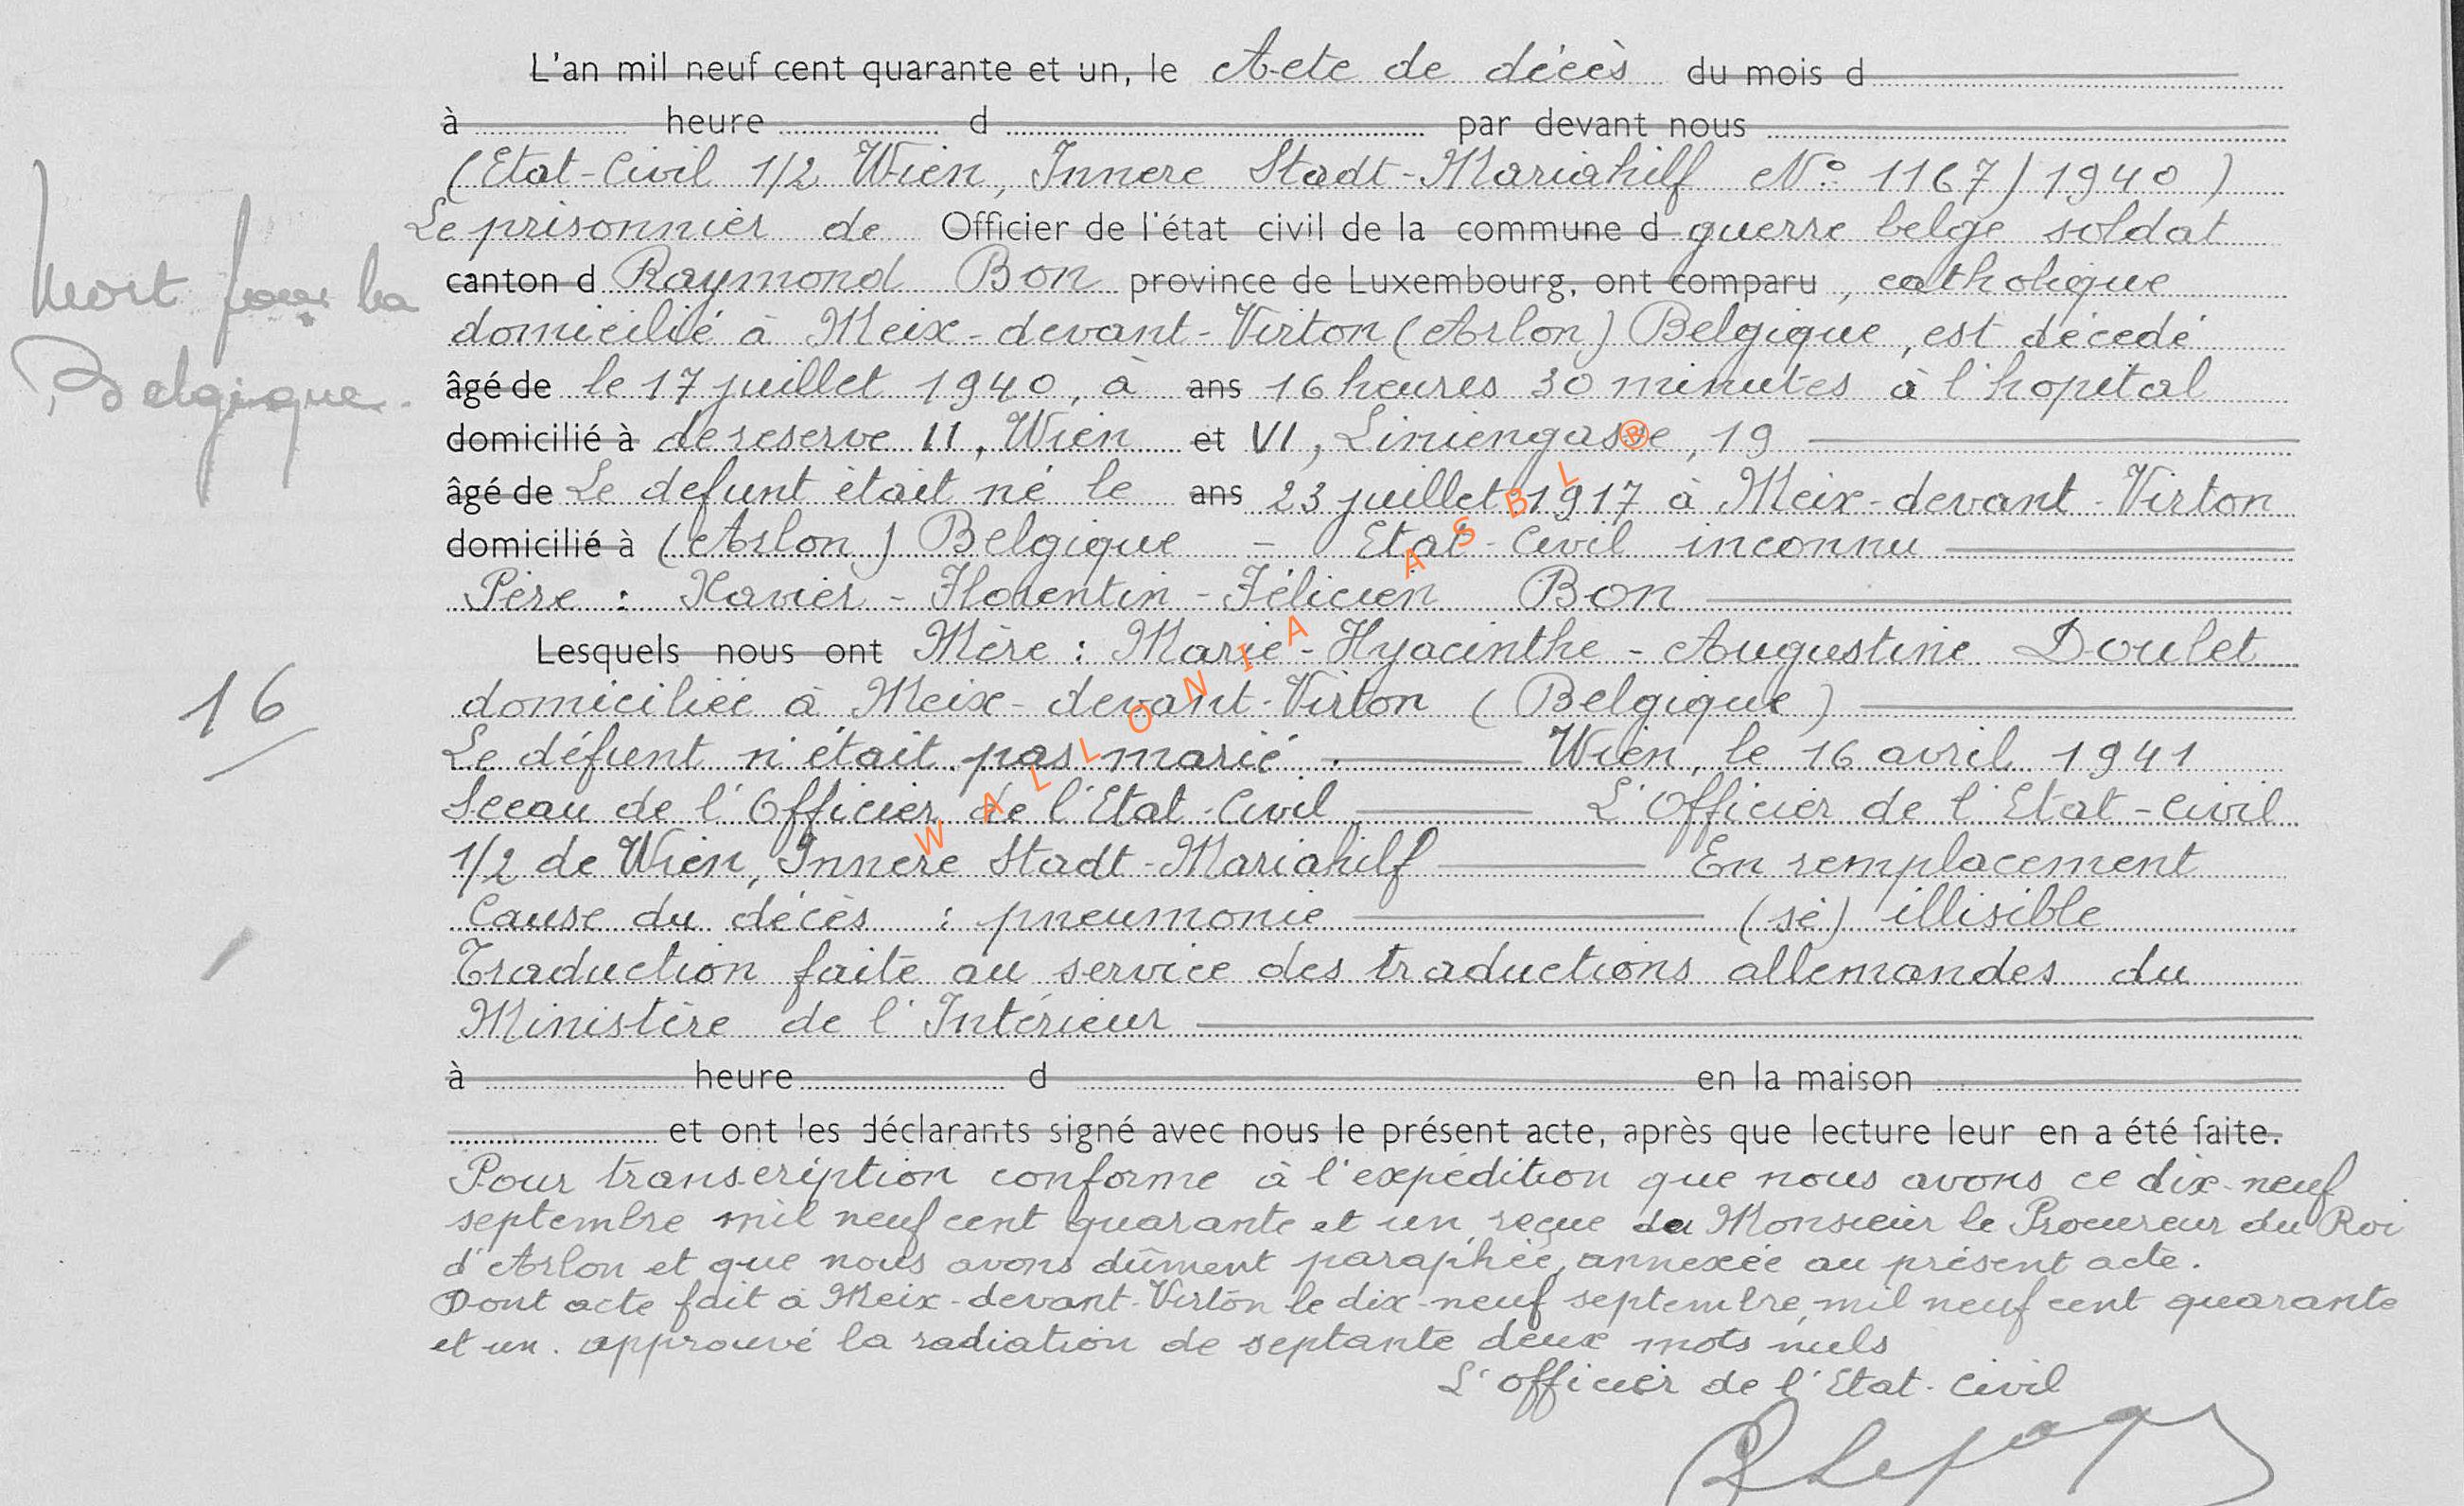 L'an mil neuf cent quarante et un, le Acte de décès du mois d
à heure d par devant nous
(Etat-Civil 1/2 Wien, Innere Stadt-Mariahilf No 1167/1940)
Le prisonnier de Officier de l'état civil de la commune d guerre belge soldat
canton d Raymond Bon province de Luxembourg, ont comparu, catholique
domicilié à Meix-devant-Virton (Arlon) Belgique, est décedé
âgé de le 17 juillet 1940, à ans 16 heures 30 minutes à l'hopital
domicilié à de reserve II, Wien et VI, Liniengasse, 19
âgé de Le defunt était né le ans 23 juillet 1917 à Meix-devant-Virton
domicilié à (Arlon) Belgique - Etat-Civil inconnu
Père : Xavier - Florentin - Félicien Bon
Lesquels nous ont Mère : Marie - Hyacinthe - Augustine Doulet
domiciliée à Meix-devant-Virton (Belgique)
Le défunt n'était pas marié. Wien, le 16 avril 1941
Sceau de l'Officier de l'Etat-Civil L'Officier de l'Etat-Civil
1/2 de Wien, Innere Stadt-Mariahilf En remplacement
Cause du décès : pneumonie (sé) illisible
Traduction faite au service des traductions allemandes du
Ministère de l'Intérieur
à heure d en la maison
et ont les déclarants signé avec nous le présent acte, après que lecture leur en a été faite.
Pour transcription conforme à l'expédition que nous avons ce dix-neuf
septembre mil neuf cent quarante et un reçue de Monsieur le Procureur du Roi
d'Arlon et que nous avons dûment paraphée, annexée au présent acte.
Dont acte fait à Meix-devant-Virton le dix-neuf septembre mil neuf cent quarante
et un. approuvé la radiation de septante deux mots nuls
L'officier de l'Etat-Civil
Mort pour la
Belgique.
16
WALLONIA ASBL ®